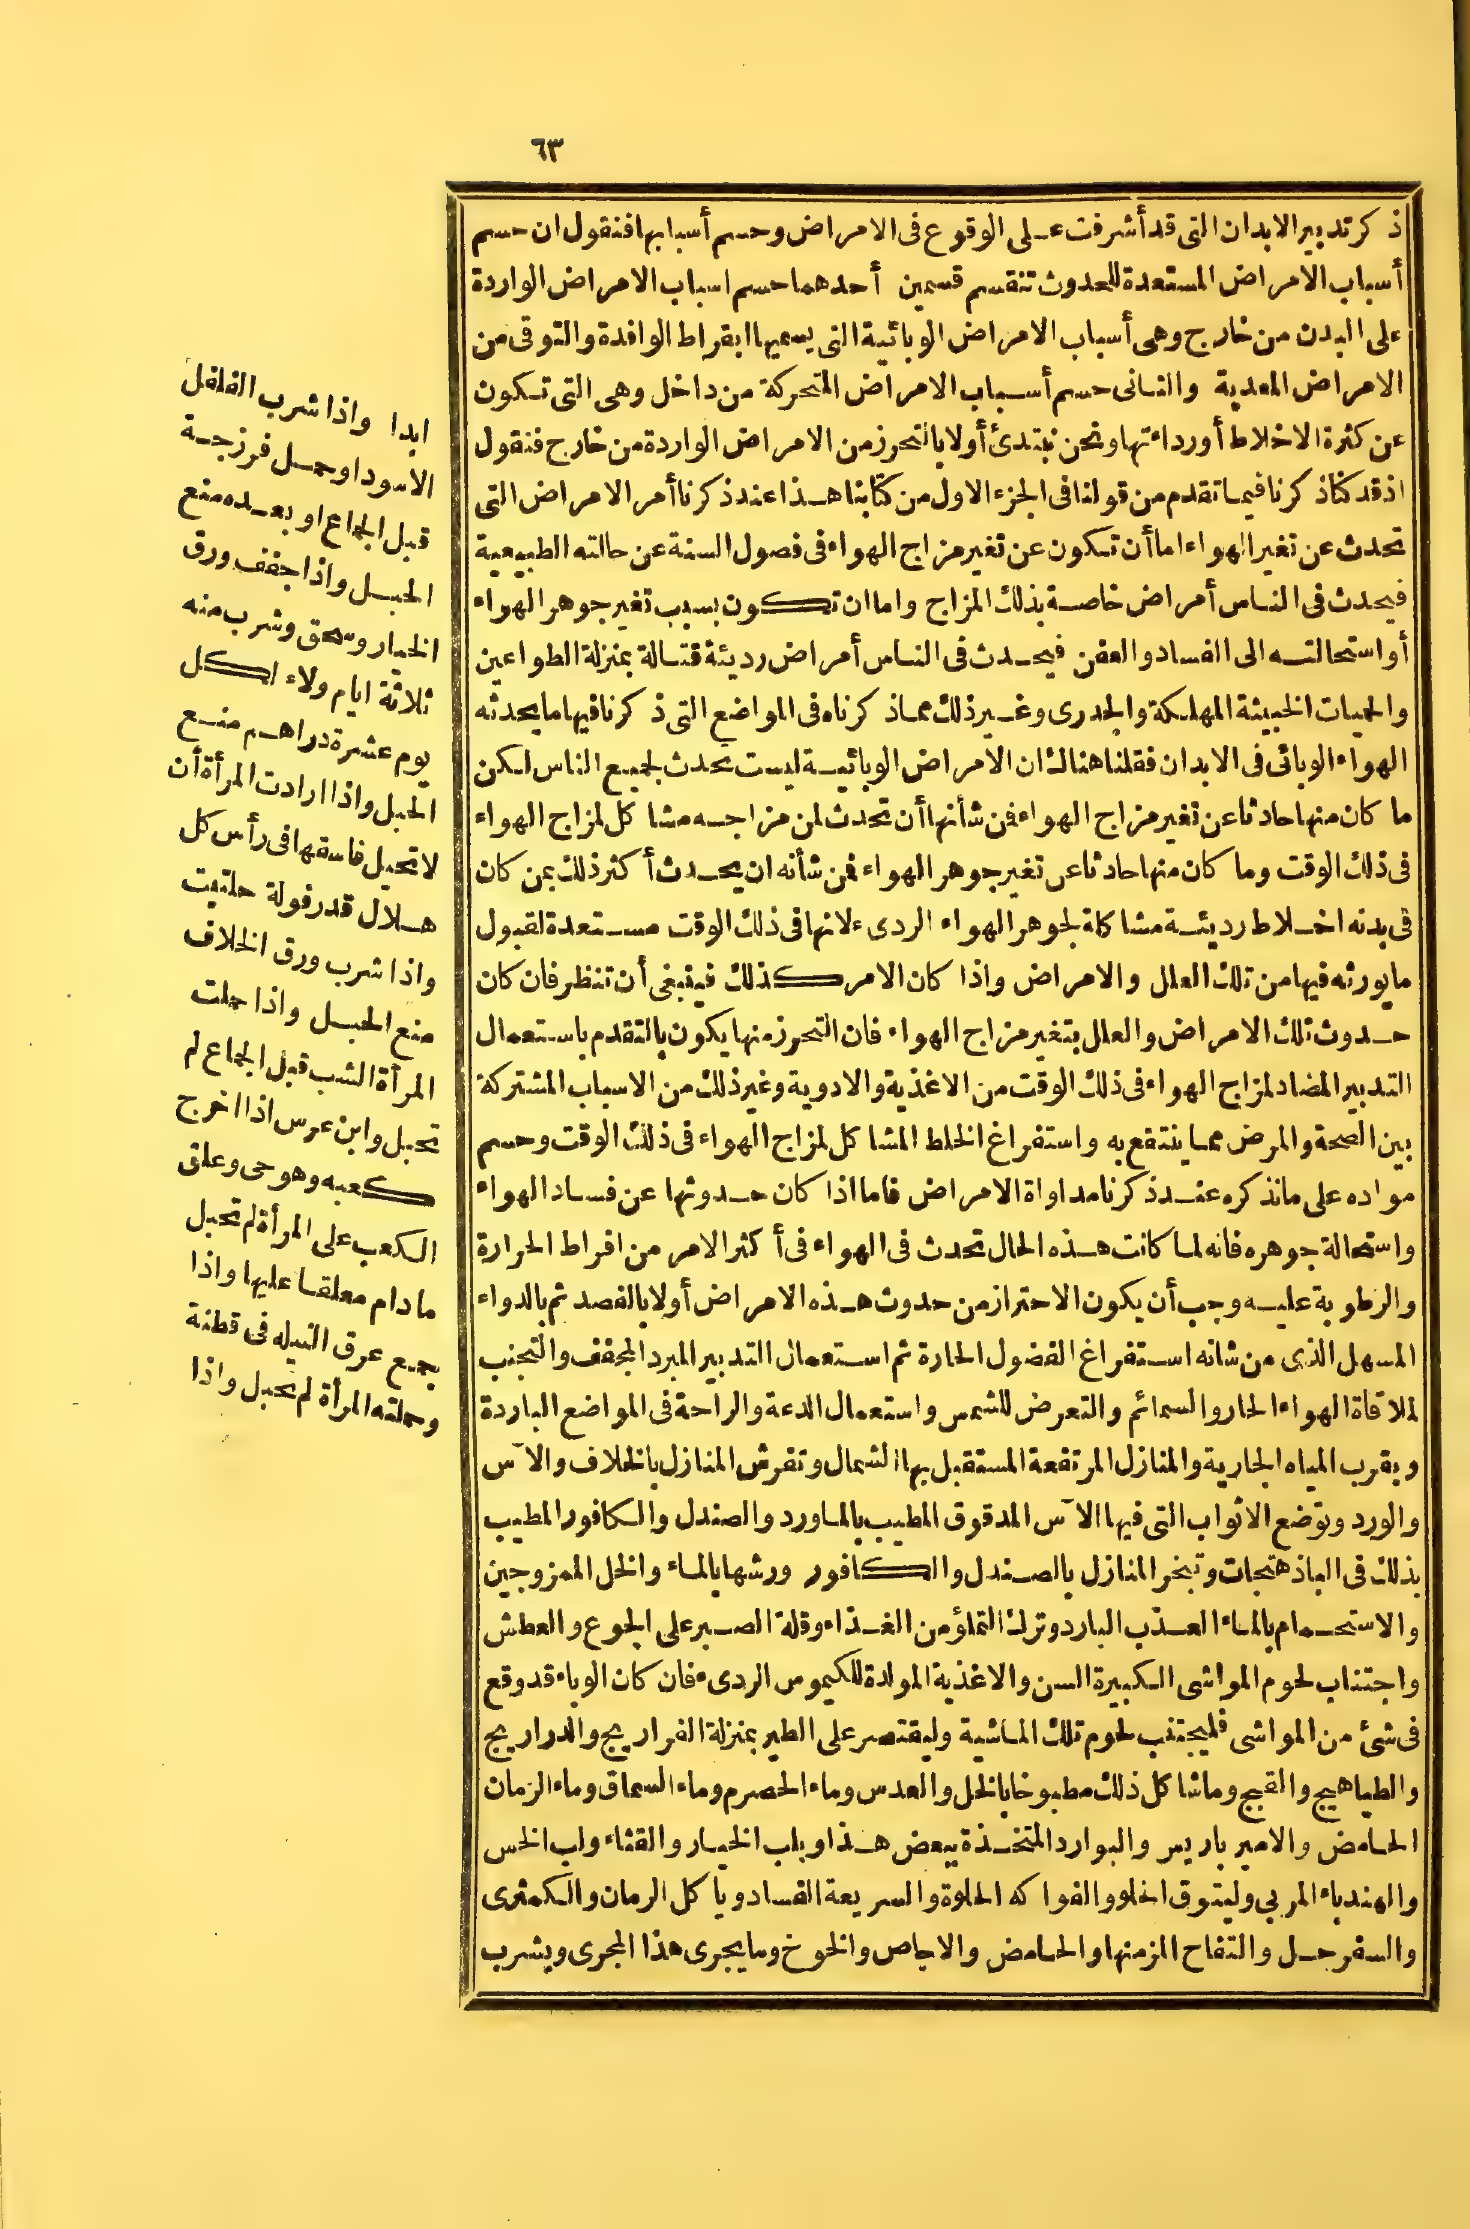 ٦٣
ذكر تدبير الابدان التى قد أشرفت على الوقوع فى الامراض وحسم أسبابها فنقول ان حسم
أسباب الامراض المستعدة للحدوث تنقسم قسمين أحدهما حسم اسباب الامراض الواردة
على البدن من خارج وهى أسباب الامراض الوبائية التى يسميها ابقراط الوافدة والتوقى من
الامراض المعدية والثانى حسم أسباب الامراض المتحركة من داخل وهى التى تكون
عن كثرة الاخلاط أورداءتها ونحن نبتدئ أولا بالتحرز من الامراض الواردة من خارج فنقول
اذ قد كنا ذكرنا فيما تقدم من قولنا فى الجزء الاول من كتابنا هذا عند ذكرنا أمر الامراض التى
تحدث عن تغير الهواء اما أن تكون عن تغير مزاج الهواء فى فصول السنة عن حالته الطبيعية
فيحدث فى الناس أمراض خاصة بذلك المزاج واما ان تكون بسبب تغير جوهر الهواء
أو استحالته الى الفساد والعفن فيحدث فى الناس أمراض رديئة قتالة بمنزلة الطواعين
والحميات الخبيثة المهلكة والجدرى وغير ذلك مما ذكرناه فى المواضع التى ذكرنا فيها ما يحدثه
الهواء الوبائى فى الابدان فقلنا هنالك ان الامراض الوبائية ليست تحدث لجميع الناس لكن
ما كان منها حادثا عن تغير مزاج الهواء فمن شأنها أن تحدث لمن مزاجه مشاكل لمزاج الهواء
فى ذلك الوقت وما كان منها حادثا عن تغير جوهر الهواء فمن شأنه ان يحدث أكثر ذلك بمن كان
فى بدنه اخلاط رديئة مشاكلة لجوهر الهواء الردىء لانها فى ذلك الوقت مستعدة لقبول
ما يورثه فيها من تلك العلل والامراض واذا كان الامر كذلك فينبغى أن تنظر فان كان
حدوث تلك الامراض والعلل بتغير مزاج الهواء فان التحرز منها يكون بالتقدم باستعمال
التدبير المضاد لمزاج الهواء فى ذلك الوقت من الاغذية والادوية وغير ذلك من الاسباب المشتركة
بين الصحة والمرض مما ينتفع به واستفراغ الخلط المشاكل لمزاج الهواء فى ذلك الوقت وحسم
مواده على ما نذكره عند ذكرنا مداواة الامراض فاما اذا كان حدوثها عن فساد الهواء
واستحالة جوهره فانه لما كانت هذه الحال تحدث فى الهواء فى أكثر الامر من افراط الحرارة
والرطوبة عليه وجب أن يكون الاحتراز من حدوث هذه الامراض أولا بالفصد ثم بالدواء
المسهل الذى من شانه استفراغ الفضول الحارة ثم استعمال التدبير المبرد المجفف والتجنب
لملاقاة الهواء الحار والسمائم والتعرض للشمس واستعمال الدعة والراحة فى المواضع الباردة
وبقرب المياه الجارية والمنازل المرتفعة المستقبل بها الشمال وتفرش المنازل بالخلاف والآس
والورد وتوضع الاثواب التى فيها الآس المدقوق المطيب بالماورد والصندل والكافور المطيب
بذلك فى الباذهنجات وتبخر المنازل بالصندل والكافور ورشها بالماء والخل الممزوجين
والاستحمام بالماء العذب البارد وترك التملؤ من الغذاء وقلة الصبر على الجوع والعطش
واجتناب لحوم المواشى الكبيرة السن والاغذية المولدة للكيموس الردىء فان كان الوباء قد وقع
فى شئ من المواشى فليجتنب لحوم تلك الماشية وليقتصر على الطير بمنزلة الفراريج والدراريج
والطياهيج والقبج وما شاكل ذلك مطبوخا بالخل والعدس وماء الحصرم وماء السماق وماء الرمان
الحامض والامبر باريس والبوارد المتخذة ببعض هذا وبلب الخيار والقثاء ولب الخس
والهندباء المربى وليتوق الحلو والفواكه الحلوة والسريعة الفساد ويأكل الرمان والكمثرى
والسفرجل والتفاح المز منها والحامض والاجاص والخوخ وما يجرى هذا المجرى ويشرب
ابدا واذا شرب الفلفل
الاسود او حمل فرزجة
قبل الجماع او بعده منع
الحبل واذا جفف ورق
الخيار وسحق وشرب منه
ثلاثة ايام ولاء اكل
يوم عشرة دراهم منع
الحبل واذا ارادت المرأة أن
لا تحبل فاسقها فى رأس كل
هلال قدر فولة حلتيت
واذا شرب ورق الخلاف
منع الحبل واذا حملت
المرأة الشب قبل الجماع لم
تحبل وابن عرس اذا اخرج
كعبه وهو حى وعلق
الكعب على المرأة لم تحبل
ما دام معلقا عليها واذا
جمع عرق النبله فى قطنة
وحملته المرأة لم تحبل واذا